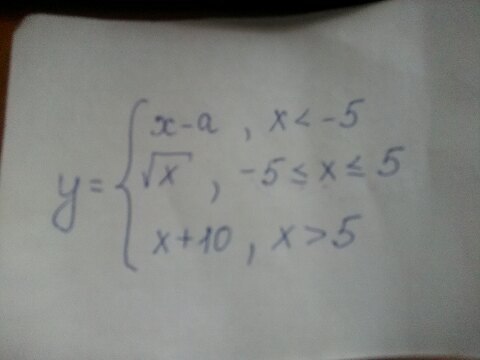 y = { x-a , x < -5
√x , -5 ≤ x ≤ 5
x+10 , x > 5